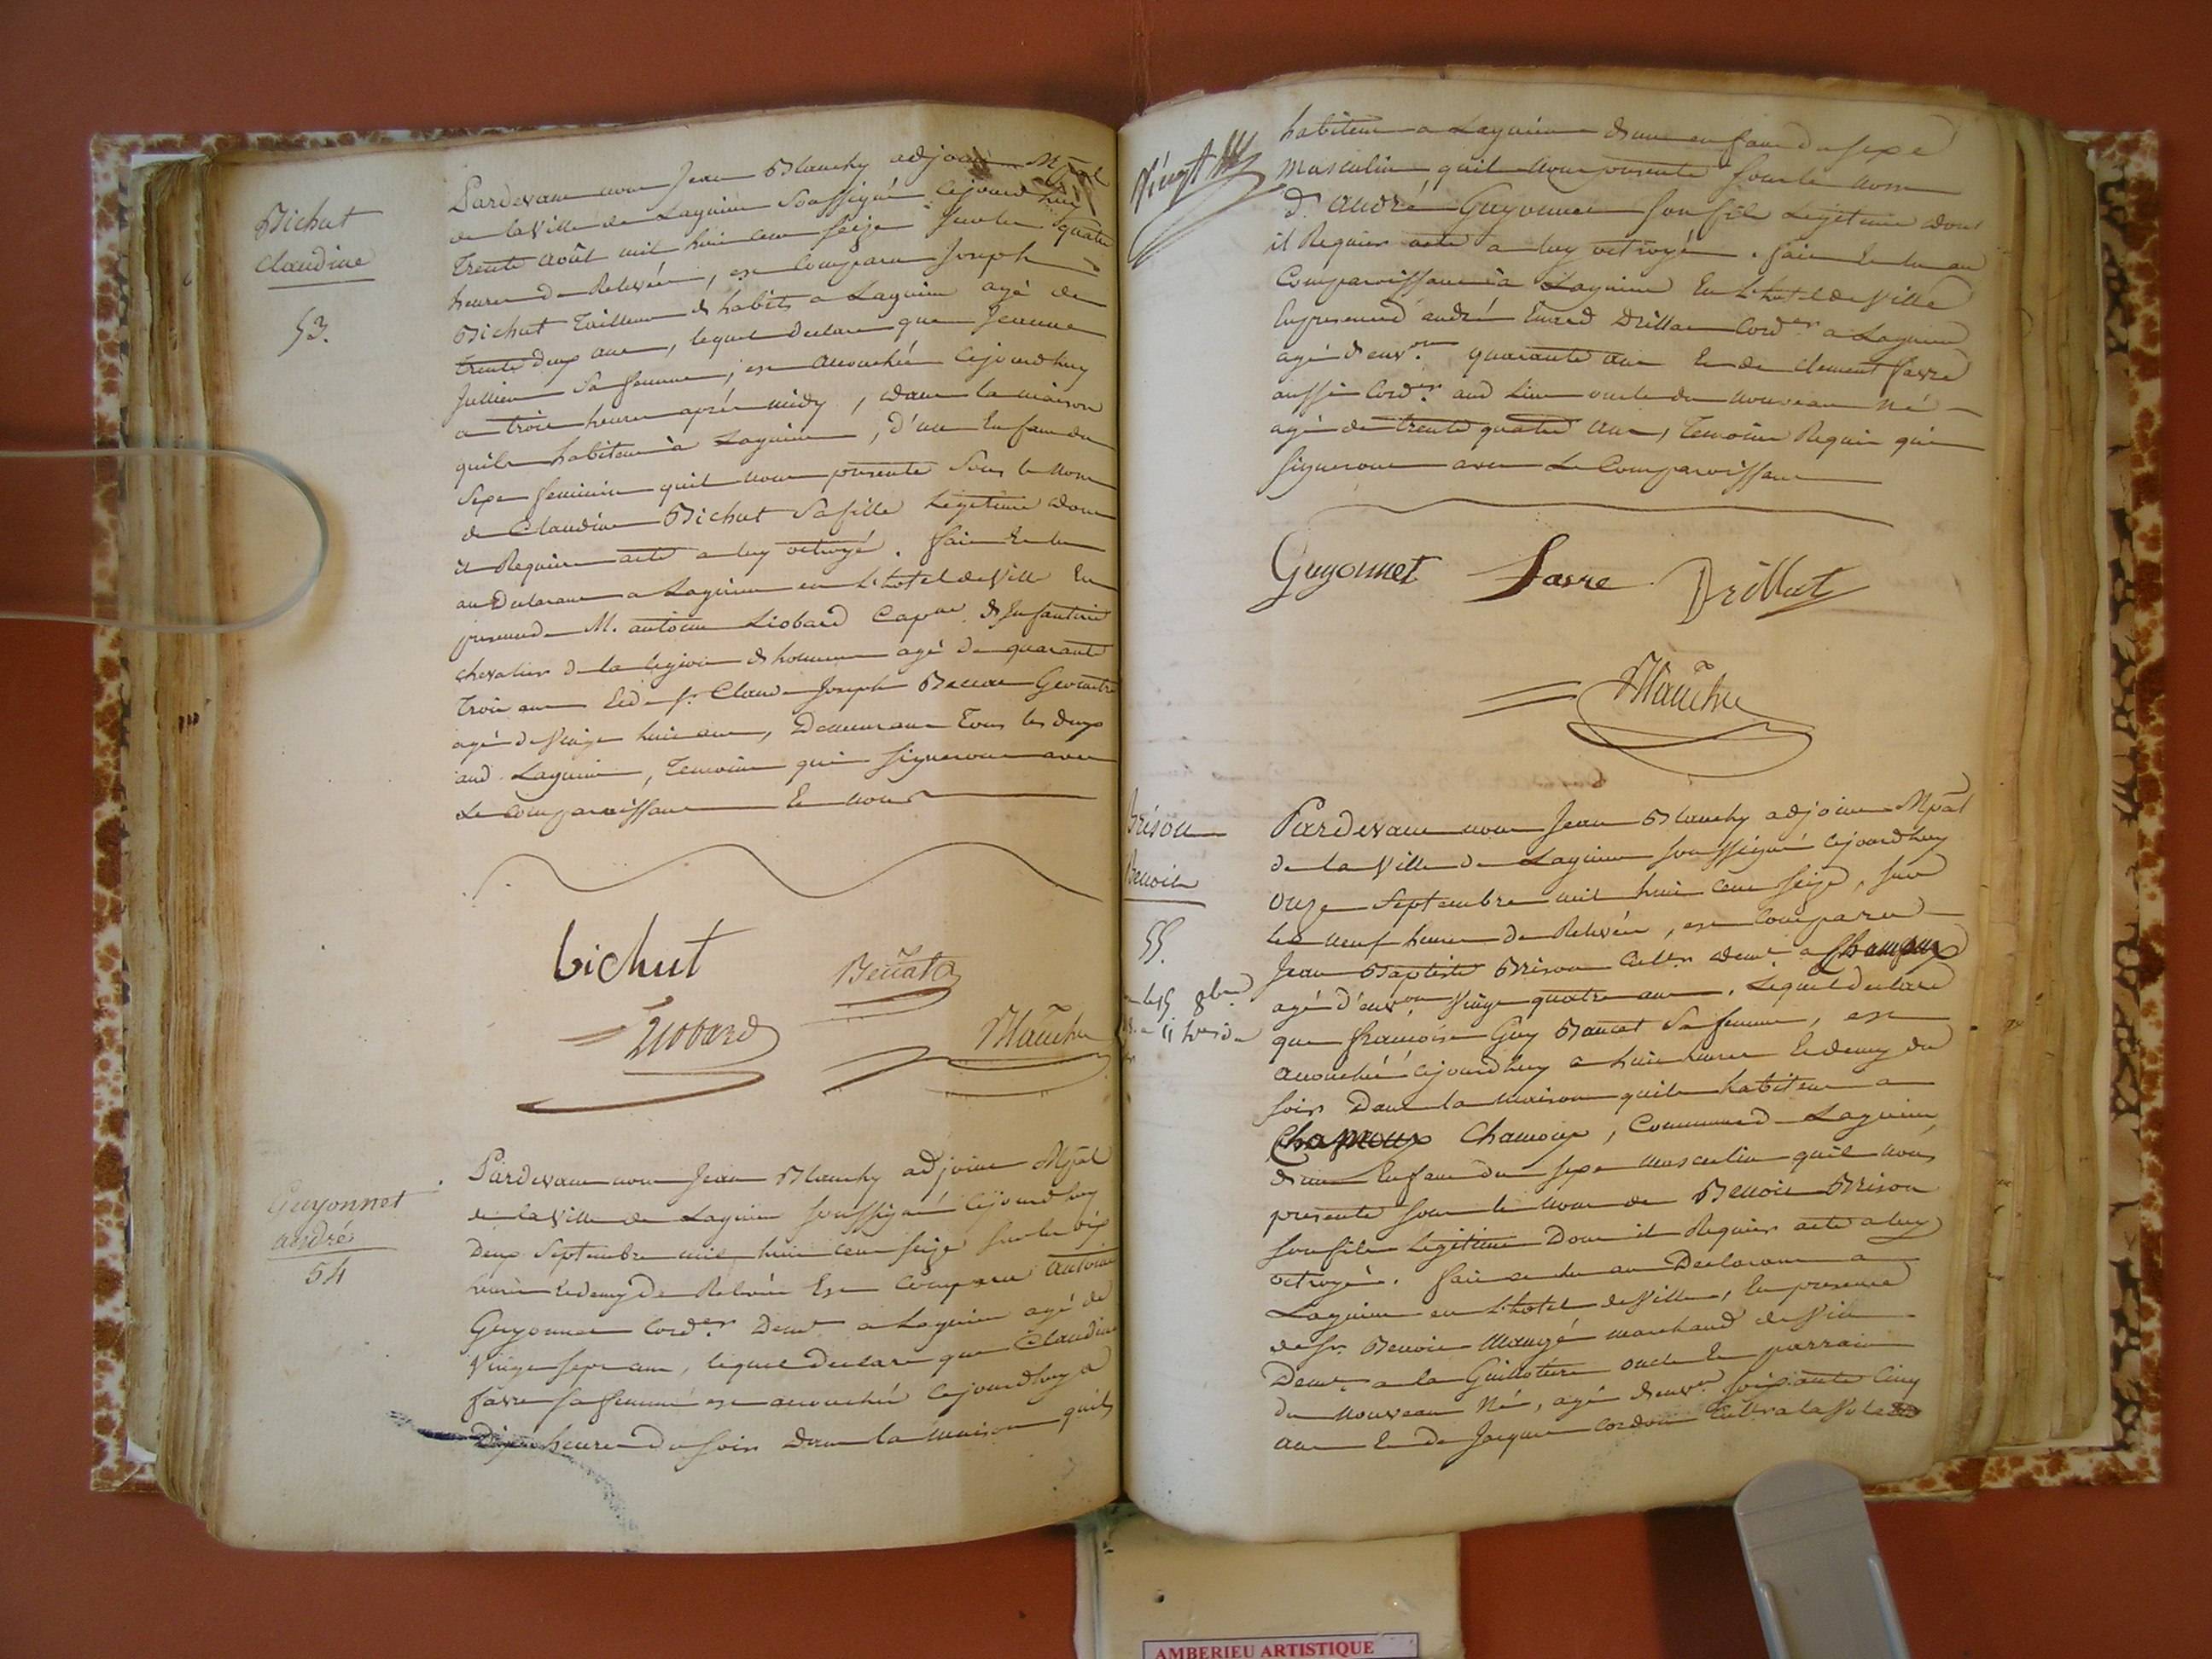 Bichut
Claudine
53.
Pardevant nous Jean Blanchy adjoint Mpal
de la Ville de Lagnieu Soussigné Cejourd'huy
trente Août mil huit cent seize Sur les quatre
heures de Relevée, est Comparu Joseph
Bichut Tailleur d'habits a Lagnieu agé de
trente deux ans, lequel declare que Jeanne
Jullien Sa femme, est accouchée Cejourdhuy
a trois heures aprés midy, dans la maison
quils habitent à Lagnieu, d'un Enfant du
Sexe feminin quil nous presente Sous le Nom
de Claudine Bichut Sa fille Legitime dont
il Requier acte a luy octroyé. fait Et lu
au Declarant a Lagnieu en L'hotel de Ville En
presence de M. antoine Liobard Capne d'Infanterie
chevalier de la legion d'honneur agé de quarante
trois ans Et de Sr. Claude Joseph Geometre
agé de Vingt huit ans, Demeurant Tous les deux
aud. Lagnieu, temoins qui signeront avec
Le Comparoissant Et nous
bichut
Liobard
Blanchy
Guyonnet
andré
54
Pardevant nous Jean Blanchy adjoint Mpal
de la Ville de Lagnieu soussigné Cejourdhuy
Deux Septembre mil huit cent seize sur les dix
heures Et demy de Relevée Est Comparu Antoine
Guyonnet Corder. Demt a Lagnieu agé de
Vingt sept ans, lequel declare que Claudine
favre sa femme est accouchée Cejourdhuy a
heures Du soir dans la maison quils
habitent a Lagnieu d'un enfant du sexe
masculin quil nous presente sous le nom
d'André Guyonnet son fils Legitime dont
il Requier acte a luy octroyé. fait Et lu au
Comparoissant à Lagnieu En L'hotel de Ville
En presence d'andré Drillat Corder a Lagnieu
agé d'env.on quarante ans Et de Clement favre
aussi Corder. aud Lieu oncle du nouveau Né
agé de trente quatre ans, Temoins Requis qui
signeront avec Le Comparoissant
Guyonnet Favre Drillat
Blanchy
Brison
Benoit
55.
Pardevant nous Jean Blanchy adjoint Mpal
de la Ville de Lagnieu soussigné Cejourdhuy
Onze Septembre mil huit cent seize, sur
les neuf heures de Relevée, est Comparu
Jean Baptiste Brison Cultr. demt. a Chamoux
agé d'env.on Vingt quatre ans, Lequel declare
que françoise Guy Sa femme, est
accouchée Cejourdhuy a huit heures Et demy du
soir Dans la maison quils habitent a
Chamoux, Commune de Lagnieu,
d'un Enfant du sexe masculin quil nous
presente sous le nom de Benoit Brison
son fils Legitime Dont il Requier acte a luy
octroyé. fait et lu au Declarant a
Lagnieu en L'hotel de Ville, En presence
de Sr. Benoit marchand de
Demt. a la Guillotiere oncle Et parrain
du nouveau Né, agé d'env.on soixante Cinq
ans Et de Jacques Cordon Cultr
AMBERIEU ARTISTIQUE